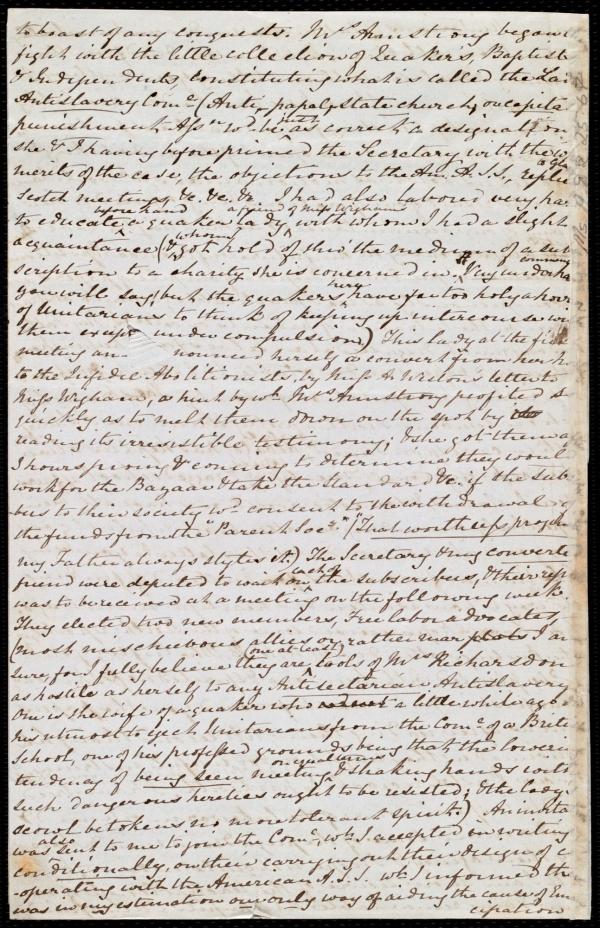 to boast of any conquests. Mrs Armstrong began
fight with the little collection of Quakers, Baptists
& Independents, constituting what is called the Lad
Antislavery Come (Anti, papal, state church, or capital
punishment Assn wd be just as correct a designatn) on
she & I having before primed the Secretary with the
merits of the case, the objections to the Am. A.S.S., replie
scotch meetings, &c. &c. &c I had also labored very ha
to educate before hand a quaker lady a friend of Miss Wighams with whom I had a slight
acquaintance (& whom I got hold of thro' the medium of a sub
scription to a charity she is concerned in. Very underha
you will say, but the quakers here have far too holy a horror
of Unitarians to think of keeping up intercourse with
them except under compulsion) This lady at the first
meeting announced herself a convert from her h
to the Infidel Abolitionists by Miss A Weston's letter to
Miss Wigham, a hint by wh Mrs Armstrong profited so
quickly as to melt them down on the spot by
reading its irresistible testimony; & she got them a
hours proing & conning to determine they would
work for the Bazaar & take the Standard &c. if the sub
bus to their society wd consent to the withdrawal
the funds from the "Parent Socy." ("That worthless
my Father always styles it.) The Secretary & my converted
friend were deputed to wait on each of the subscribers, & their rep
was to be received at a meeting on the following week.
They elected two new members, Free labor advocates
(most mischievous allies or rather war plots I am
sure, for I fully believe they are (one at least) tools of Mrs Richardson
as hostile as herself to any Antisectarian Antislavery
One is the wife of a quaker who a little while ago
his utmost to eject Unitarians from the Come of a Briti
School, one of his professed grounds being that the lowering
tendency of being seen meeting on equal terms & shaking hands with
such dangerous heretics ought to be resisted; & the Lady
scowl betokens no more tolerant spirit.) An invita
was also sent to me to join the Come, wh I accepted in writing
conditionally, on their carrying out their design of c
-operating with the American A.S.S. wh I informed th
was in my estimation our only way of aiding the cause of Em
cipation